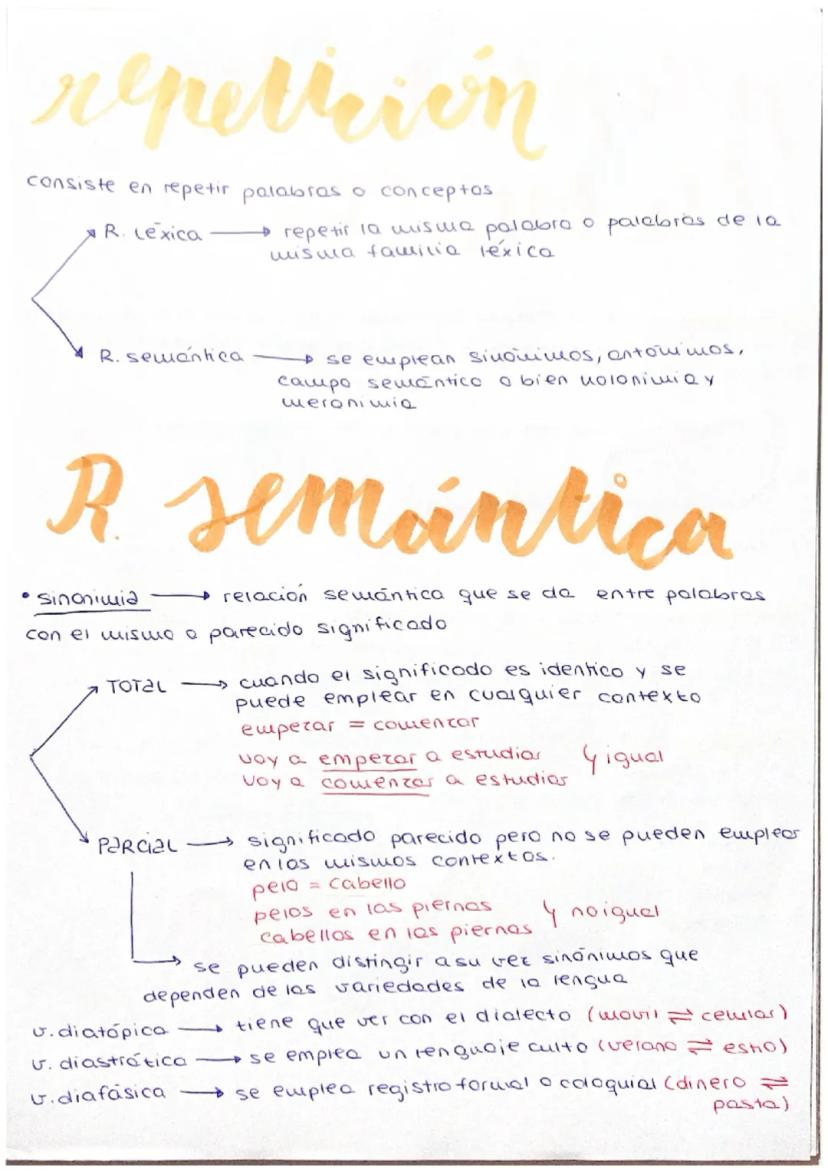 repetición
consiste en repetir palabras o conceptos
R. Léxica → repetir la misma palabra o palabras de la
misma familia léxica
R. semántica → se emplean sinónimos, antónimos,
campo semántico o bien holonimia y
meronimia
R. semántica
• sinonimia → relación semántica que se da entre palabras
con el mismo o parecido significado
TOTAL → cuando el significado es identico y se
puede emplear en cualquier contexto
empezar = comenzar
voy a empezar a estudiar
voy a comenzar a estudiar } igual
PARCIAL → significado parecido pero no se pueden emplear
en los mismos contextos.
pelo = cabello
pelos en las piernas
cabellos en las piernas } no igual
→ se pueden distingir a su vez sinónimos que
dependen de las variedades de la lengua
v. diatópica → tiene que ver con el dialecto (movil ⇌ celular)
v. diastrática → se emplea un lenguaje culto (verano ⇌ estío)
v. diafásica → se emplea registro formal o coloquial (dinero ⇌
pasta)